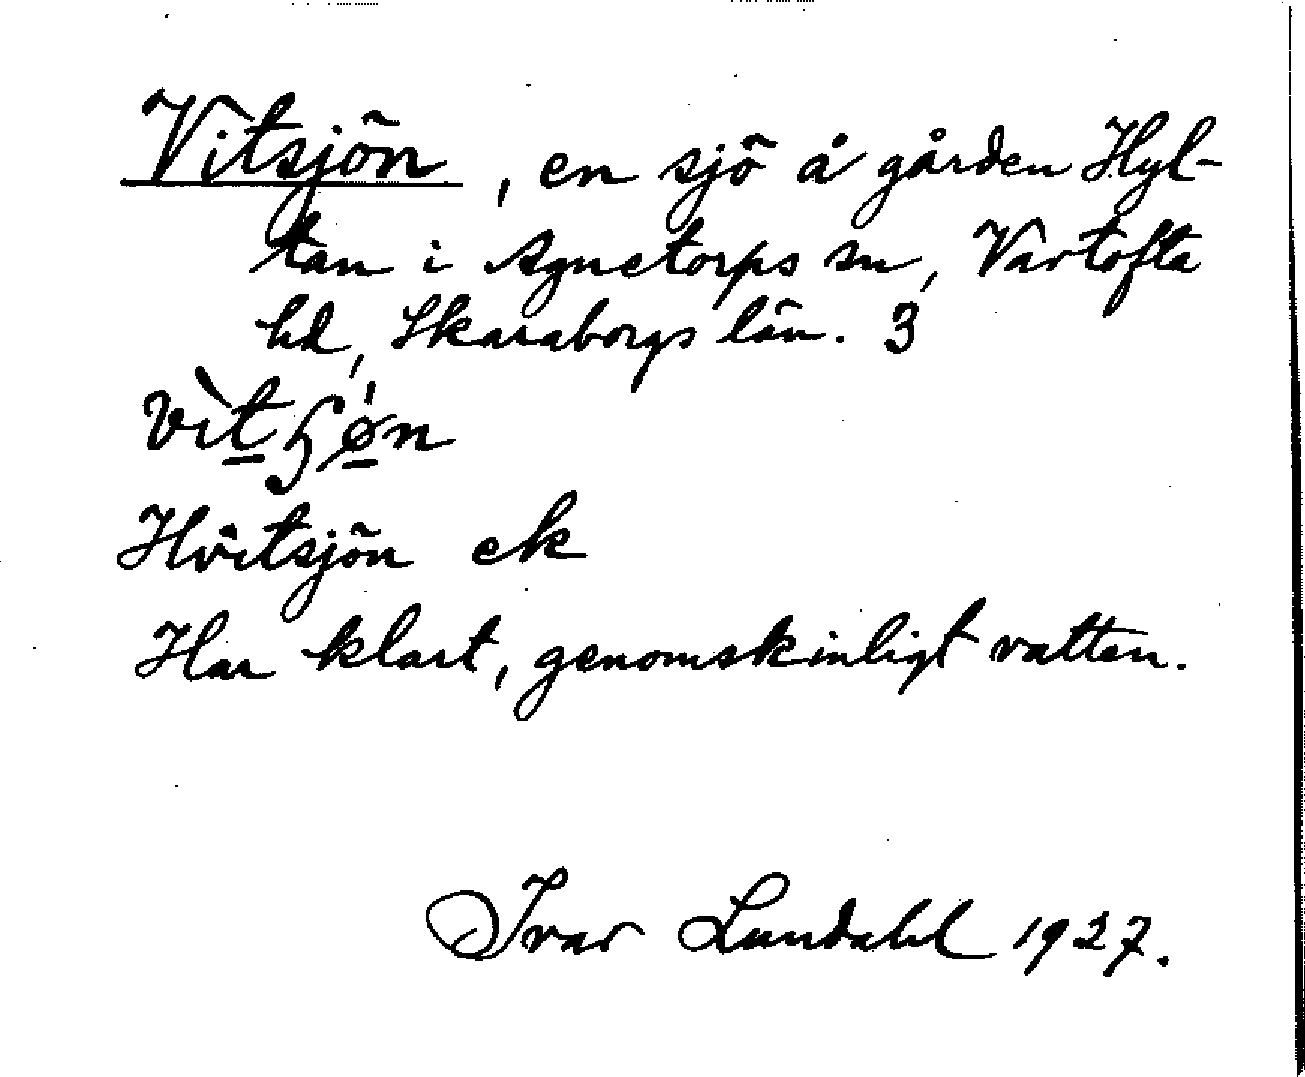 Vitsjön, en sjö å gården Hyl-
tan i Agnetorps sn, Vartofta
hd, Skaraborgs län. 3
Hvitsjön ek
Har klart, genomskinligt vatten.
Ivar Lundahl 1927.